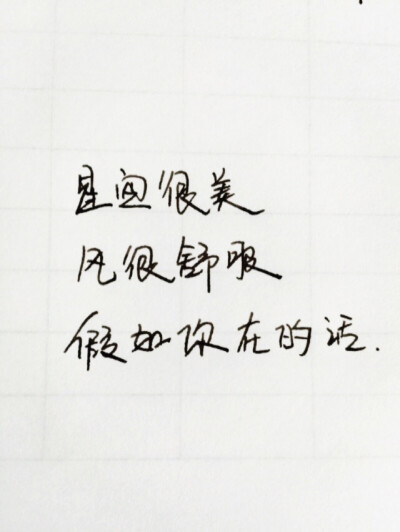 星间很美
风很舒服
假如你在的话.